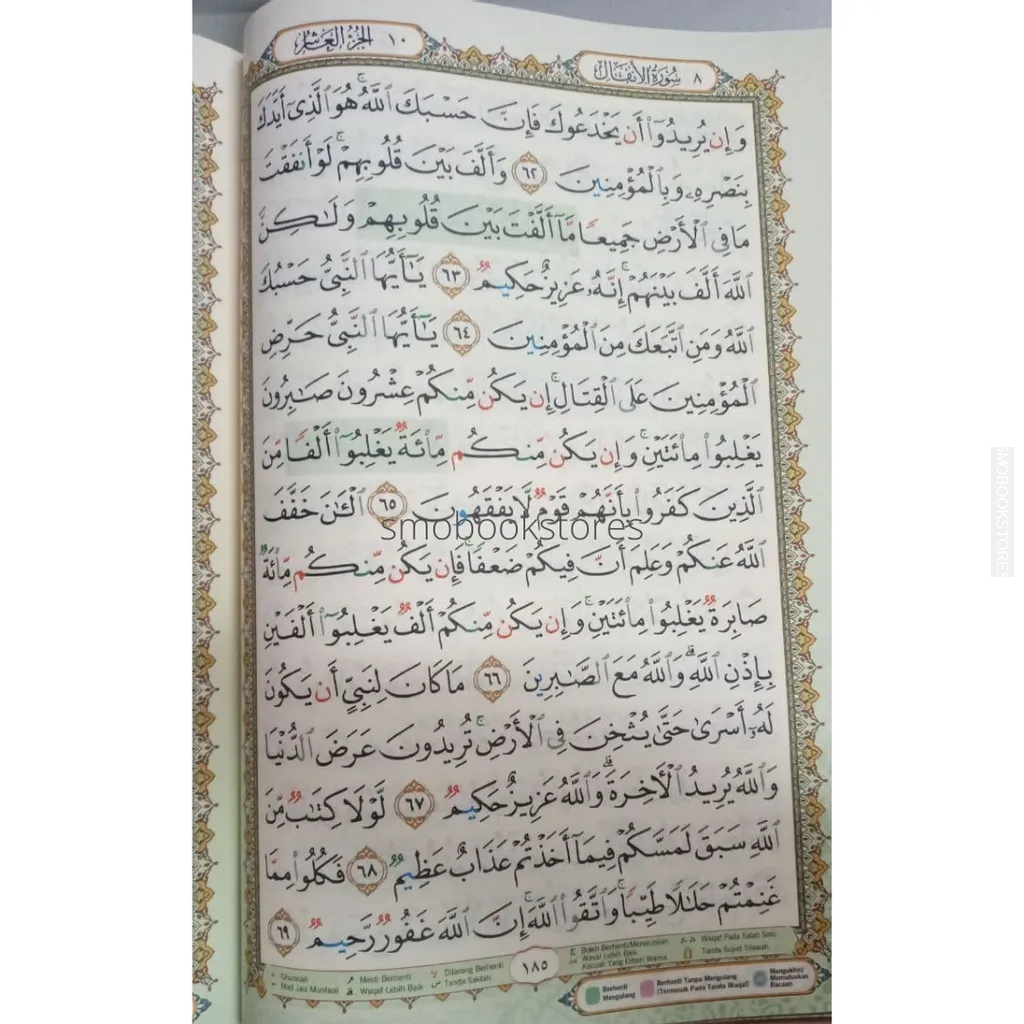 ١٠ الجزء العاشر
سورة الأنفال ٨
وَإِن يُرِيدُوٓا۟ أَن يَخْدَعُوكَ فَإِنَّ حَسْبَكَ ٱللَّهُ ۚ هُوَ ٱلَّذِىٓ أَيَّدَكَ
بِنَصْرِهِۦ وَبِٱلْمُؤْمِنِينَ ٦٢ وَأَلَّفَ بَيْنَ قُلُوبِهِمْ ۚ لَوْ أَنفَقْتَ
مَا فِى ٱلْأَرْضِ جَمِيعًا مَّآ أَلَّفْتَ بَيْنَ قُلُوبِهِمْ وَلَـٰكِنَّ
ٱللَّهَ أَلَّفَ بَيْنَهُمْ ۚ إِنَّهُۥ عَزِيزٌ حَكِيمٌ ٦٣ يَـٰٓأَيُّهَا ٱلنَّبِىُّ حَسْبُكَ
ٱللَّهُ وَمَنِ ٱتَّبَعَكَ مِنَ ٱلْمُؤْمِنِينَ ٦٤ يَـٰٓأَيُّهَا ٱلنَّبِىُّ حَرِّضِ
ٱلْمُؤْمِنِينَ عَلَى ٱلْقِتَالِ ۚ إِن يَكُن مِّنكُمْ عِشْرُونَ صَـٰبِرُونَ
يَغْلِبُوا۟ مِا۟ئَتَيْنِ ۚ وَإِن يَكُن مِّنكُم مِّا۟ئَةٌ يَغْلِبُوٓا۟ أَلْفًا مِّنَ
ٱلَّذِينَ كَفَرُوا۟ بِأَنَّهُمْ قَوْمٌ لَّا يَفْقَهُونَ ٦٥ ٱلْـَٔـٰنَ خَفَّفَ
ٱللَّهُ عَنكُمْ وَعَلِمَ أَنَّ فِيكُمْ ضَعْفًا ۚ فَإِن يَكُن مِّنكُم مِّا۟ئَةٌ
صَابِرَةٌ يَغْلِبُوا۟ مِا۟ئَتَيْنِ ۚ وَإِن يَكُن مِّنكُمْ أَلْفٌ يَغْلِبُوٓا۟ أَلْفَيْنِ
بِإِذْنِ ٱللَّهِ ۗ وَٱللَّهُ مَعَ ٱلصَّـٰبِرِينَ ٦٦ مَا كَانَ لِنَبِىٍّ أَن يَكُونَ
لَهُۥٓ أَسْرَىٰ حَتَّىٰ يُثْخِنَ فِى ٱلْأَرْضِ ۚ تُرِيدُونَ عَرَضَ ٱلدُّنْيَا
وَٱللَّهُ يُرِيدُ ٱلْـَٔاخِرَةَ ۗ وَٱللَّهُ عَزِيزٌ حَكِيمٌ ٦٧ لَّوْلَا كِتَـٰبٌ مِّنَ
ٱللَّهِ سَبَقَ لَمَسَّكُمْ فِيمَآ أَخَذْتُمْ عَذَابٌ عَظِيمٌ ٦٨ فَكُلُوا۟ مِمَّا
غَنِمْتُمْ حَلَـٰلًا طَيِّبًا ۚ وَٱتَّقُوا۟ ٱللَّهَ ۚ إِنَّ ٱللَّهَ غَفُورٌ رَّحِيمٌ ٦٩
smobookstores
SMOBOOKSTORES
١٨٥
Ghunnah
Mad Jaiz Munfasil
Mesti Berhenti
Waqaf Lebih Baik
Dilarang Berhenti
Tanda Saktah
Boleh Berhenti/Meneruskan
Wasal Lebih Baik
Kecuali Yang Diberi Warna
Waqaf Pada Salah Satu
Tanda Sujud Tilawah
Berhenti Mengulang
Berhenti Tanpa Mengulang
(Termasuk Pada Tanda Waqaf)
Mengakhiri/
Memutuskan
Bacaan